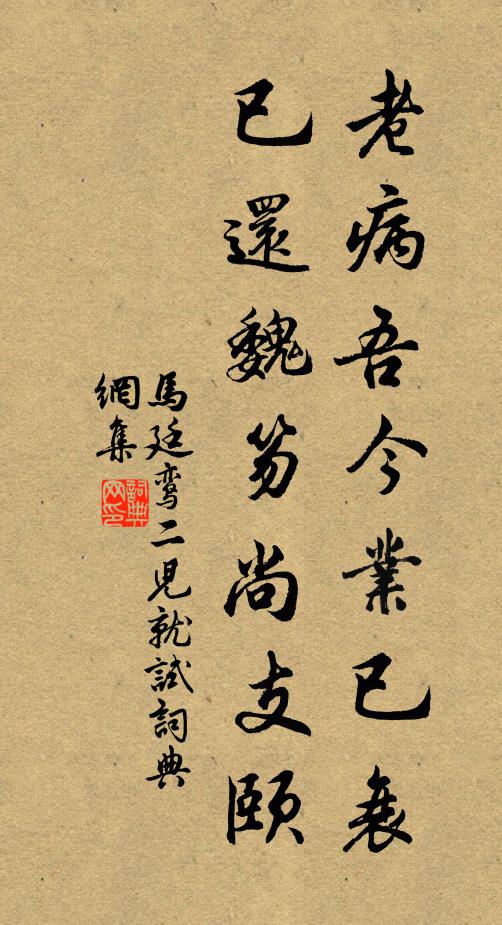 老病吾今業已衰
已還魏笏尚支頤
馬廷鸞二児就試詞典
網集
詞典
网印